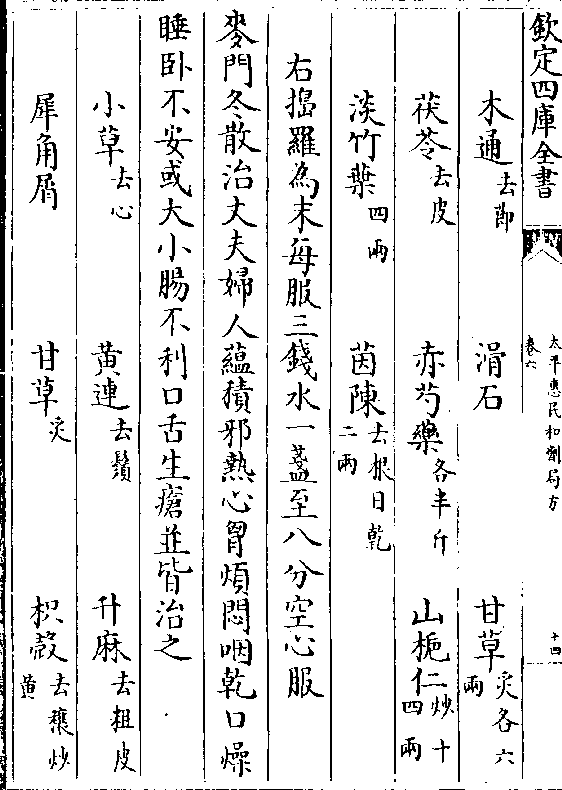 欽定四庫全書
太平惠民和劑局方
卷六
十四
木通去節 滑石 甘草炙各六兩
茯苓去皮 赤芍藥各半斤 山梔仁炒十四兩
淡竹葉四兩 茵陳去根日乾二兩
右搗羅為末每服三錢水一盞至八分空心服
麥門冬散治丈夫婦人蘊積邪熱心胷煩悶咽乾口燥
睡卧不安或大小腸不利口舌生瘡並皆治之
小草去心 黄連去鬚 升麻去粗皮
犀角屑 甘草炙 枳殻去穰炒黄